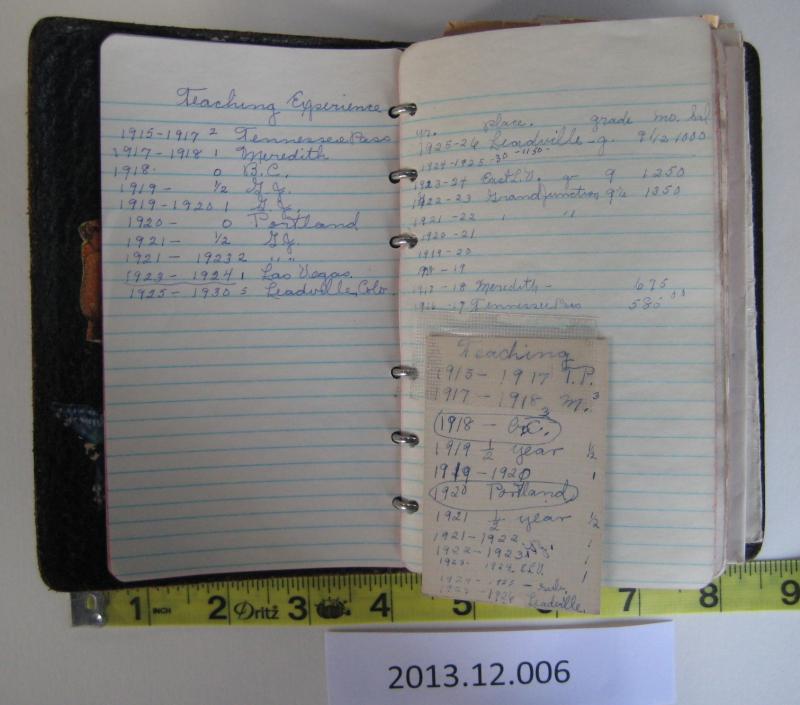 Teaching Experience
1915-1917 2 Tennessee Pass
1917-1918 1 Meredith
1918. 0 B.C.
1919- 1/2 G.J.
1919-1920 1 G.J.
1920- 0 Portland
1921- 1/2 G.J.
1921-1923 2 " "
1923-1924 1 Las Vegas
1925-1930 5 Leadville, Colo.
yr. place. grade mo. Sal
1925-26 Leadville - g. 9 1/2 1000
1924-1925-30 -1150-
1923-24 East L.V. gr 9 1250
1922-23 Grand Junction 9 1/2 1350
1921-22 " "
1920-21
1919-20
1918-19
1917-18 Meredith - 675
1916-17 Tennessee Pass 580 00
Teaching
1915-1917 T.P.
1917-1918 M. 3
1918 - B.C.
1919 1/2 year 1/2
1919-1920 1
1920 Portland
1921 1/2 year 1/2
1921-1922 1
1922-1923 1
1923-1924 E.L.V. 1
1924-1925 -
1925-1926 Leadville.
1 INCH 2 Dritz 3 4 5 6 7 8 9
2013.12.006